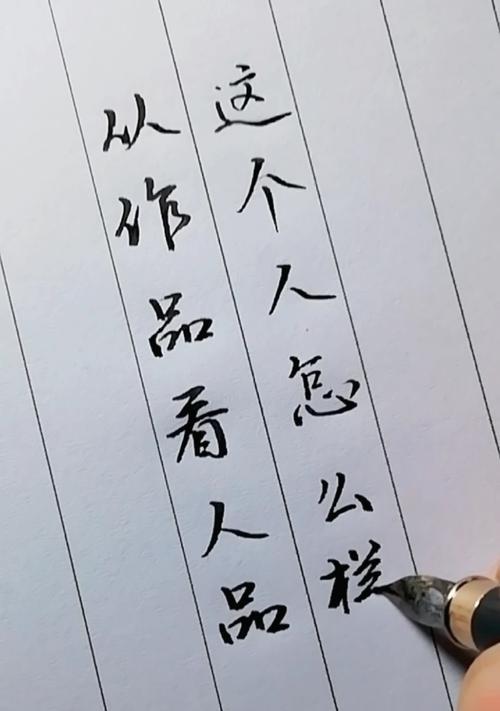 从作品看人品
这个人怎么样